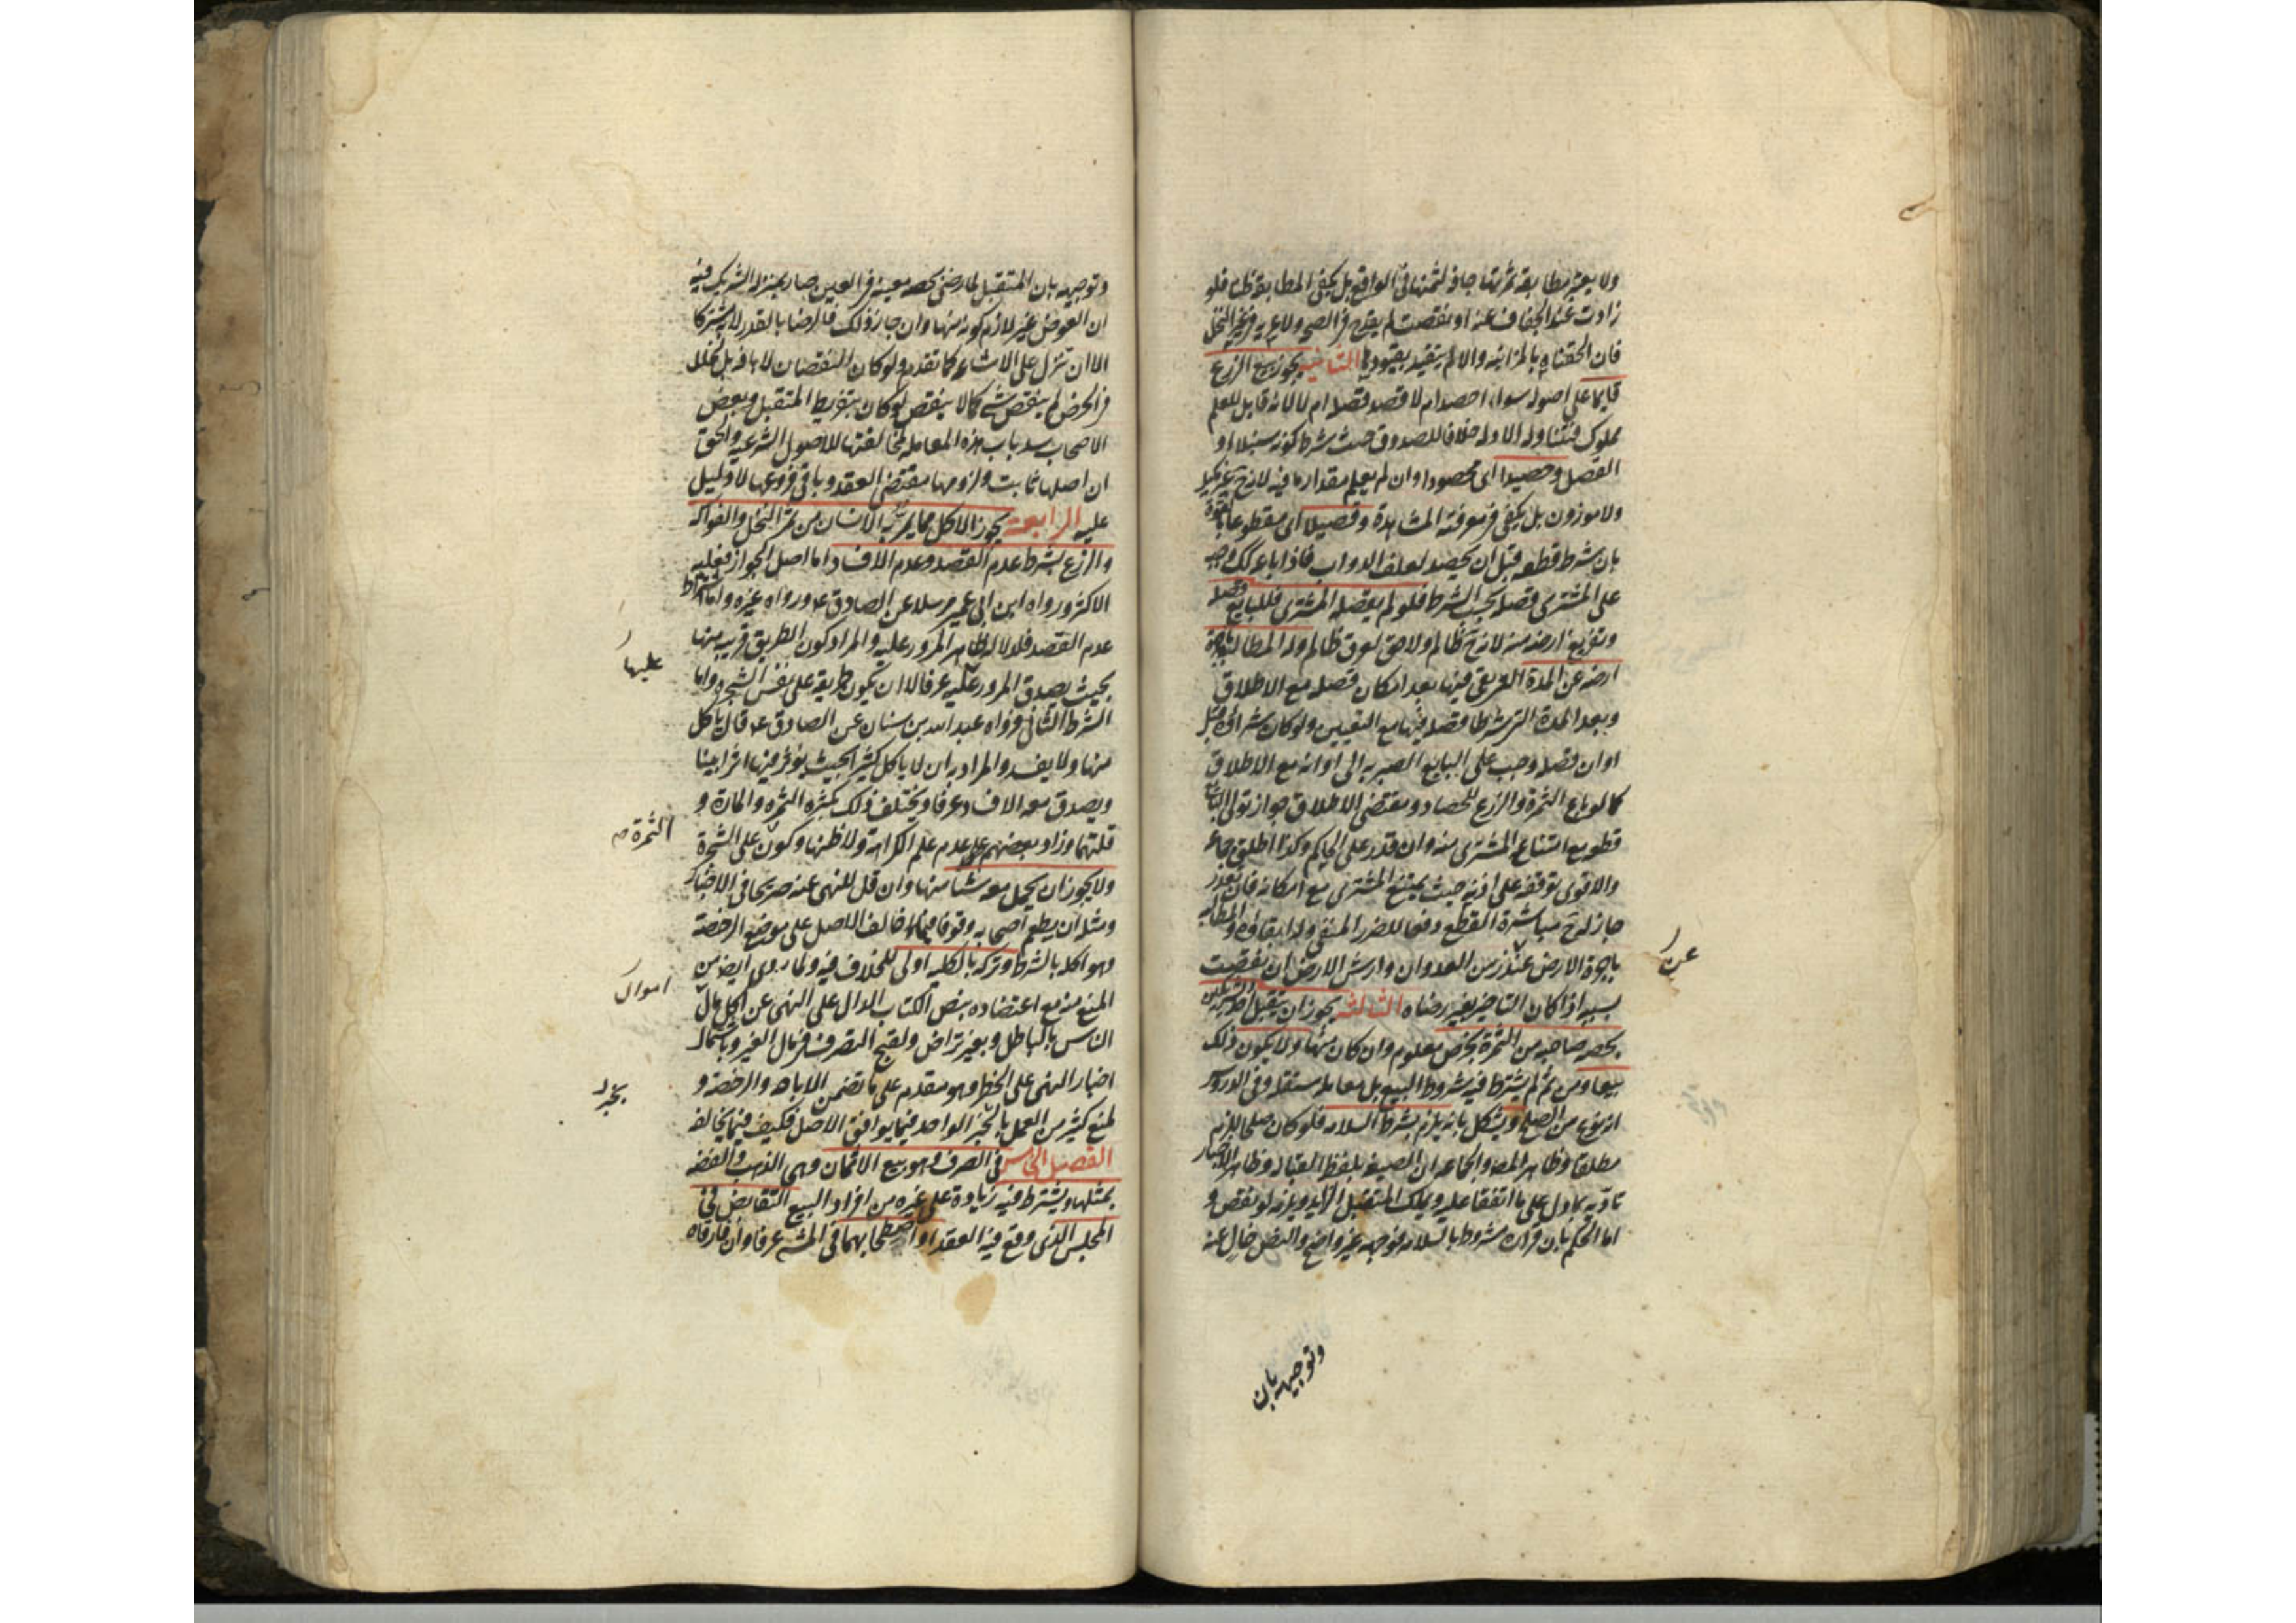 ولا يعتبر مطابقة ثمرتها جافة لثمنها في الواقع بل يكفي المطابقة ظنا فلو
زادت عند الجفاف عنه او نقصت لم يقدح في الصحة ولا عرية في غير النخل
فان الحقناه بالمزابنة والا لم يتقيد بقيودها الثانية يجوز بيع الزرع
قايما على اصوله سواء احصد ام لا قصد قصله ام لا لانه قابل للعلم
مملوك فتتناوله الادلة خلافا للصدوق حيث شرط كونه سنبلا او
القصل وحصيدا اى محصودا وان لم يعلم مقدار ما فيه لانه ح غير مكيل
ولا موزون بل يكفي في معرفته المشاهدة وقصيلا اى مقطوعا بالقوة
بان شرط قطعه قبل ان يحصد لعلف الدواب فاذا باعه كك وجب
على المشترى قصله بحسب الشرط فلو لم يقصله المشترى فللبايع قصله
وتفريغ ارضه منه لانه ح ظالم ولا حق لعرق ظالم وله المطالبة باجرة
ارضه عن المدة التي بقي فيها بعد امكان قصله مع الاطلاق
وبعد المدة التي شرطا قصله فيها مع التعيين ولو كان شرائه قبل
اوان قصله وجب على البايع الصبر به الى اوانه مع الاطلاق
كما لو باع الثمرة والزرع للحصاد ومقتضى الاطلاق جواز تولى البايع
قطعه مع امتناع المشترى منه وان قدر على الحاكم وكذا اطلق جماعة
والاقوى توقفه على اذنه حيث يمتنع المشترى مع امكانه فان تعذر
جاز له ح مباشرة القطع دفعا للضرر المنفي وله ابقاؤه والمطالبة
باجرة الارض عن زمن العدوان وارش الارض ان نقصت
عن
بسببه اذا كان التاخير بغير رضاه الثالثة يجوز ان يتقبل احد الشريكين
بحصة صاحبه من الثمرة بخرص معلوم وان كان منها ولا يكون ذلك
بيعا ومن ثم لم يشترط فيه شروط البيع بل معاملة مستقلة وفي الدروس
انه نوع من الصلح ويشكل بانه يلزم بشرط السلامة فلو كان صلحا للزم
مطلقا وظاهر المص والجماعة ان الصيغة بلفظ القبالة وظاهر الاخبار
تاديه بما دل على ما اتفقا عليه ويملك المتقبل الزايد ويلزمه لو نقص و
اما الحكم بان قراره مشروط بالسلامة فوجهه غير واضح والنص خال عنه
وتوجيهه بان
وتوجيهه بان المتقبل لما رضي بحصة معينة في العين صار بمنزلة الشريك فيه
ان العوض غير لازم كونه منها وان جاز ذلك فالرضا بالقدر لا به مشتركا
الا ان تنزل على الاشاعة كما تقدم ولو كان النقصان لا بافة بل بخلل
في الخرص لم ينقص شيء كما لا ينقص لو كان بتفريط المتقبل وبعض
الاصحاب سد باب هذه المعاملة لمخالفتها للاصول الشرعية والحق
ان اصلها ثابت ولزومها مقتضى العقد وباقي فروعها لا دليل
عليه الرابعة يجوز الاكل مما يمر به الانسان من ثمر النخل والفواكه
والزرع بشرط عدم القصد وعدم الافساد اما اصل الجواز فعليه
الاكثر ورواه ابن ابى عمير مرسلا عن الصادق ع ورواه غيره واما اشتراط
عدم القصد فلدلالة ظاهر المرور عليه والمراد كون الطريق قريبة منها
بحيث يصدق المرور عليه عرفا لا ان يكون طريقه على نفس الشجرة واما
عليها
الشرط الثاني فرواه عبد الله بن سنان عن الصادق ع قال ياكل
منها ولا يفسد والمراد به ان لا ياكل كثيرا بحيث يؤثر فيها اثرا بينا
ويصدق معه الافساد عرفا ويختلف ذلك بكثرة الثمرة والمارة و
قلتهما وزاد بعضهم على عدم علم الكراهة ولا ظنها وكون على الشجرة
الثمرة
ولا يجوز ان يحمل معه شيئا منها وان قل للنهي عنه صريحا في الاخبار
ومثله ان يطعم اصحابه وقوفا فيما خالف الاصل على موضع الرخصة
وهو اكله بالشرط وتركه بالكلية اولى للخلاف فيه ولما روى ايض من
المنع منه مع اعتضاده بنص الكتاب الدال على النهى عن اكل مال
اموال
الناس بالباطل وبغير تراض ولقبح التصرف في مال الغير وباشتمال
اخبار النهى على الحظر وهو مقدم على ما تضمن الاباحة والرخصة و
لمنع كثير من العمل بالخبر الواحد فيما يوافق الاصل فكيف فيما يخالفه
بخبر
الفصل الخامس في الصرف وهو بيع الاثمان وهي الذهب والفضة
بمثلها ويشترط فيه زيادة على غيره من افراد البيع التقابض في
المجلس الذى وقع فيه العقد او اصطحابهما في المشى عرفا وان فارقاه